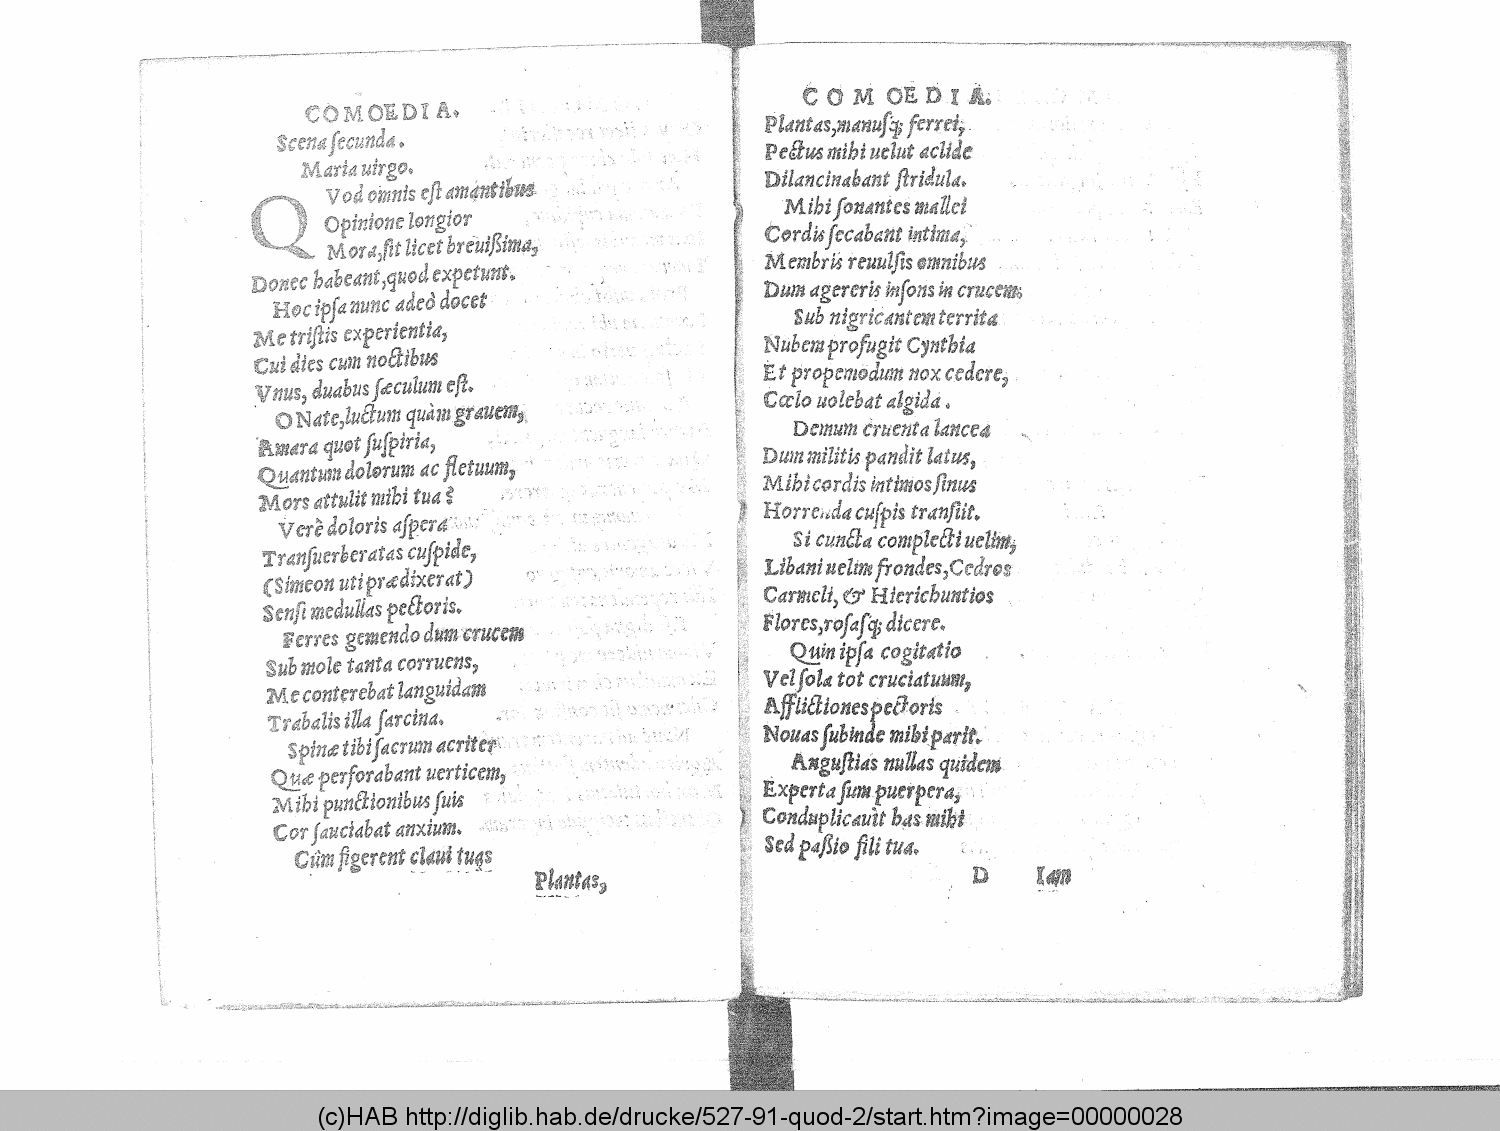 COMOEDIA.
Scena ſecunda.
Maria uirgo.
QVod omnis eſt amantibus
Opinione longior
Mora, ſit licet breuißima,
Donec habeant, quod expetunt.
Hoc ipſa nunc adeò docet
Me triſtis experientia,
Cui dies cum noctibus
Vnus, duabus ſæculum eſt.
O Nate, luctum quàm grauem,
Amara quot ſuſpiria,
Quantum dolorum ac fletuum,
Mors attulit mihi tua?
Verè doloris aſpera
Tranſuerberatas cuſpide,
(Simeon uti prædixerat)
Senſi medullas pectoris.
Ferres gemendo dum crucem
Sub mole tanta corruens,
Me conterebat languidam
Trabalis illa ſarcina.
Spinæ tibi ſacrum acriter
Quæ perforabant uerticem,
Mihi punctionibus ſuis
Cor ſauciabat anxium.
Cùm figerent claui tuas
Plantas,
COMOEDIA.
Plantas, manuſq; ferrei,
Pectus mihi uelut aclide
Dilancinabant ſtridula.
Mihi ſonantes mallei
Cordis ſecabant intima,
Membris reuulſis omnibus
Dum agereris inſons in crucem,
Sub nigricantem territa
Nubem profugit Cynthia
Et propemodum nox cedere,
Cœlo uolebat algida.
Demum cruenta lancea
Dum militis pandit latus,
Mihi cordis intimos ſinus
Horrenda cuſpis tranſiit.
Si cuncta complecti uelim,
Libani uelim frondes, Cedros
Carmeli, & Hierichuntios
Flores, roſaſq; dicere.
Quin ipſa cogitatio
Vel ſola tot cruciatuum,
Afflictiones pectoris
Nouas ſubinde mihi parit.
Anguſtias nullas quidem
Experta ſum puerpera,
Conduplicauit has mihi
Sed paßio fili tua.
D Iam
(c)HAB http://diglib.hab.de/drucke/527-91-quod-2/start.htm?image=00000028